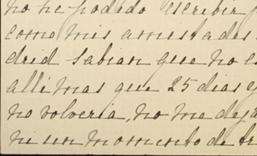 no he podido escribir
como mis amistades
drid sabian que no es
alli mas que 25 dias y
no volveria, no me deja
ni un momento de